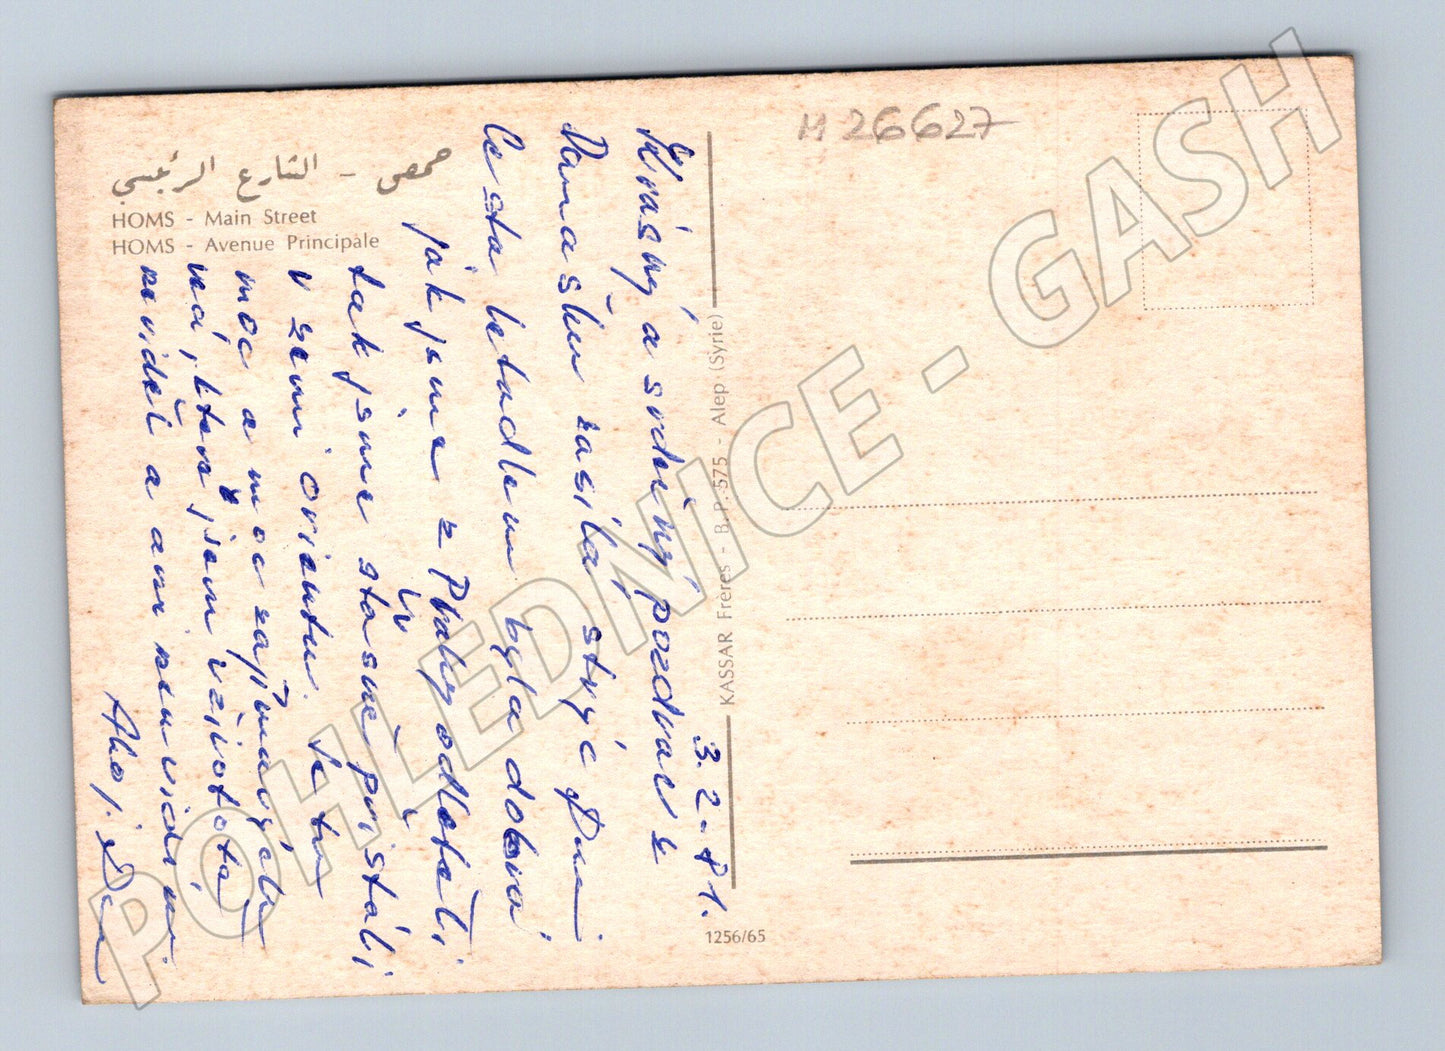 حمص - الشارع الرئيسي
HOMS - Main Street
HOMS - Avenue Principale
M 26627
3.2.81.
Krásný a srdečný pozdrav z
Damašku zasílá strýc
Cesta letadlem byla dobrá
jak jsme z Prahy odletěli
tak jsme šťasně přistáli
v zemi orientu. Je tu
moc a moc zajímavých
věcí, které jsem v životě
neviděl a ani neuvidím.
Ahoj.
KASSAR Frères - B.P. 575 - Alep (Syrie)
1256/65
POHLEDNICE - GASH